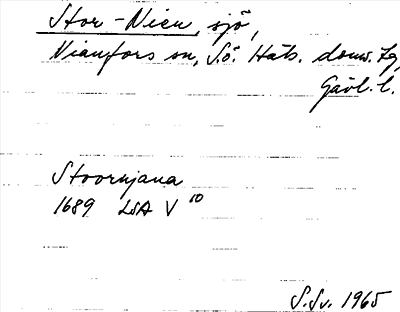 Stor-Nien, sjö,
Nianfors sn, S.ö. Häls. doms. tg,
Gävl. l.
Stoornjana
1689 LSA V 10
S.Sv. 1965